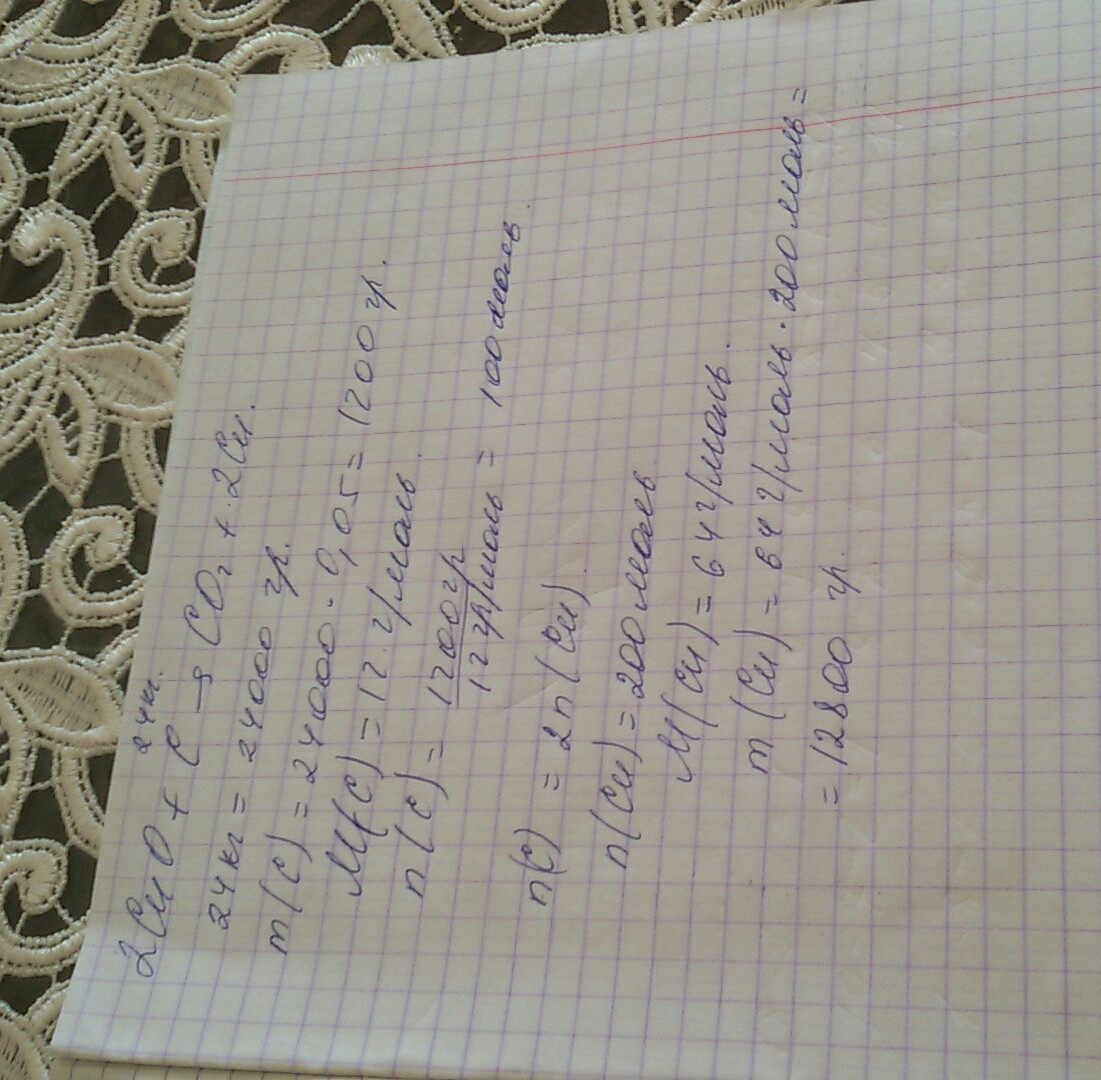 24кг.
2CuO + C → CO₂ + 2Cu.
24кг = 24000 гр.
m(C) = 24000 · 0,05 = 1200 гр.
M(C) = 12 г/моль.
n(C) = 1200гр / 12 гр/моль = 100 моль.
n(C) = 2n(Cu)
n(Cu) = 200 моль
M(Cu) = 64 г/моль.
m(Cu) = 64 г/моль · 200 моль =
= 12800 гр.